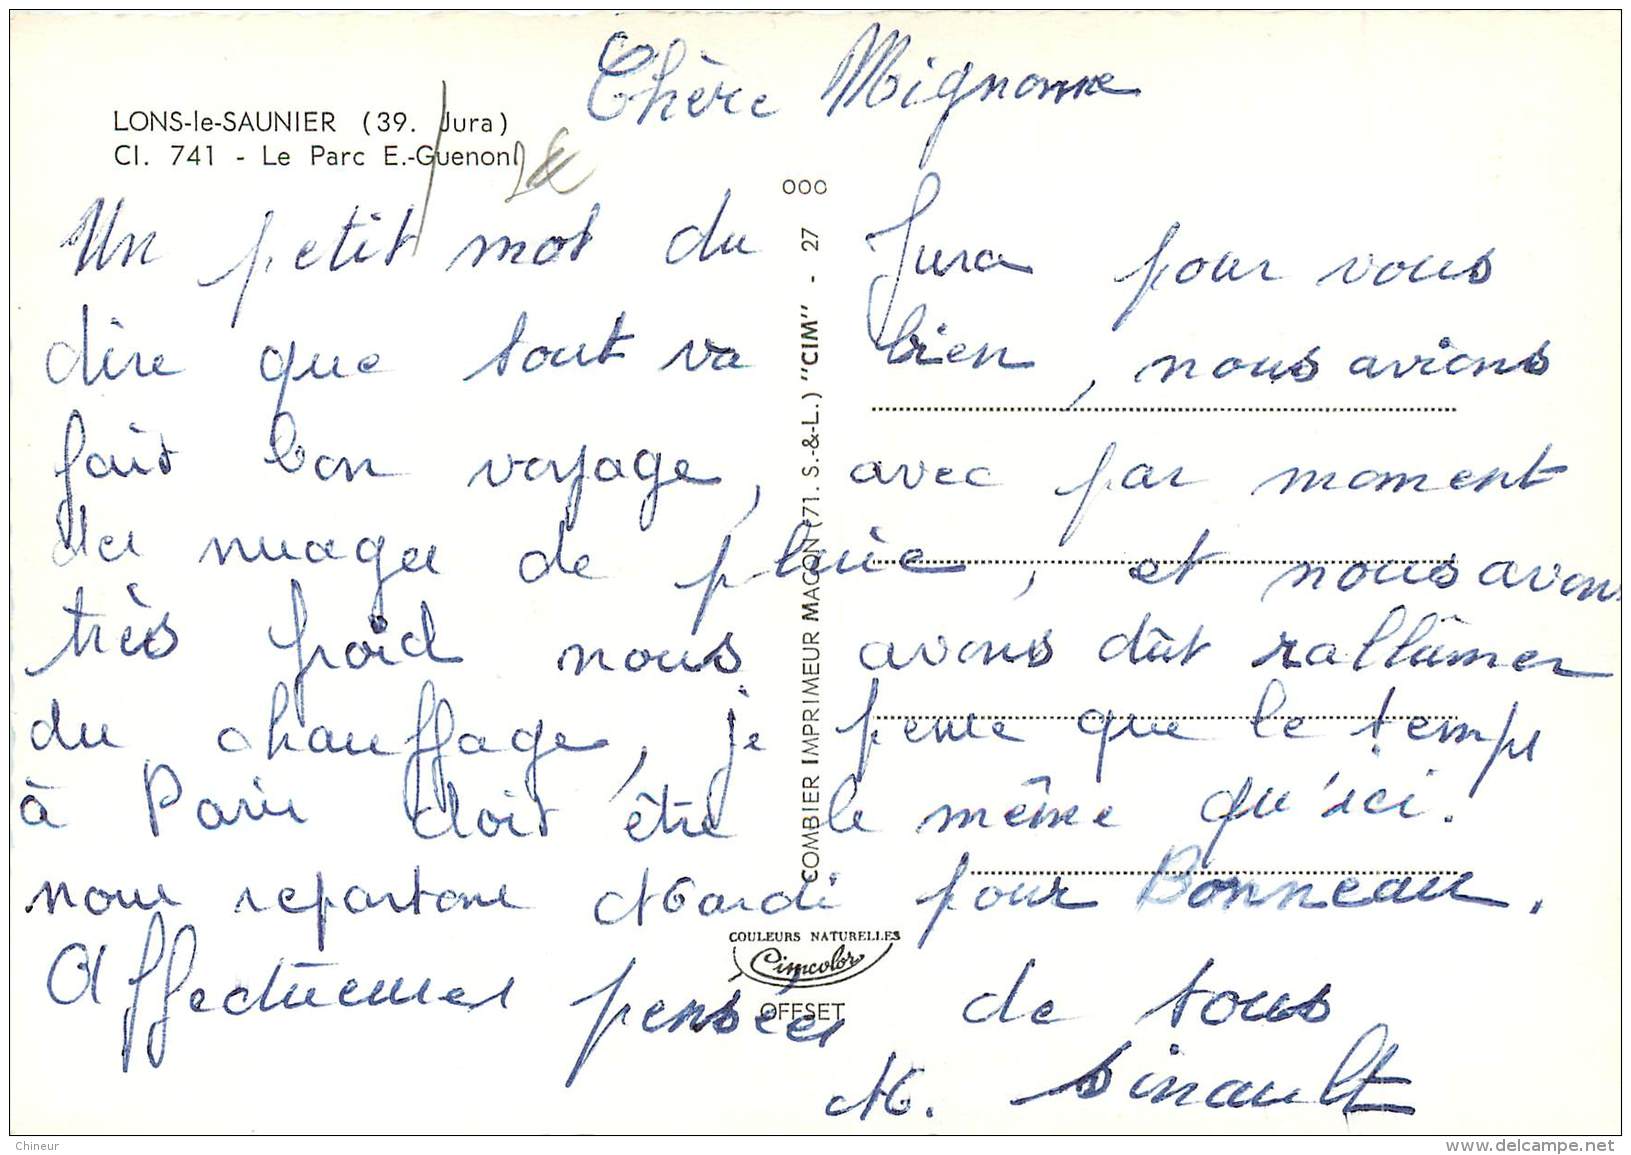 Chère Mignonne
LONS-le-SAUNIER (39. Jura)
Cl. 741 - Le Parc E.-Guenon
000
Un petit mot du Jura pour vous
dire que tout va bien, nous avions
fait bon voyage, avec par moment
des nuages de pluie, et nous avons
très froid nous avons dût rallûmer
du chauffage, je pense que le temps
à Paris doit être le même qu'ici.
nous repartons Mardi pour Bonneau.
Affectueuses pensées de tous
M. Sinault
COMBIER IMPRIMEUR MACON (71. S.-&-L.) "CIM" - 27
COULEURS NATURELLES
Cimcolor
OFFSET
Chineur
delcampe.net